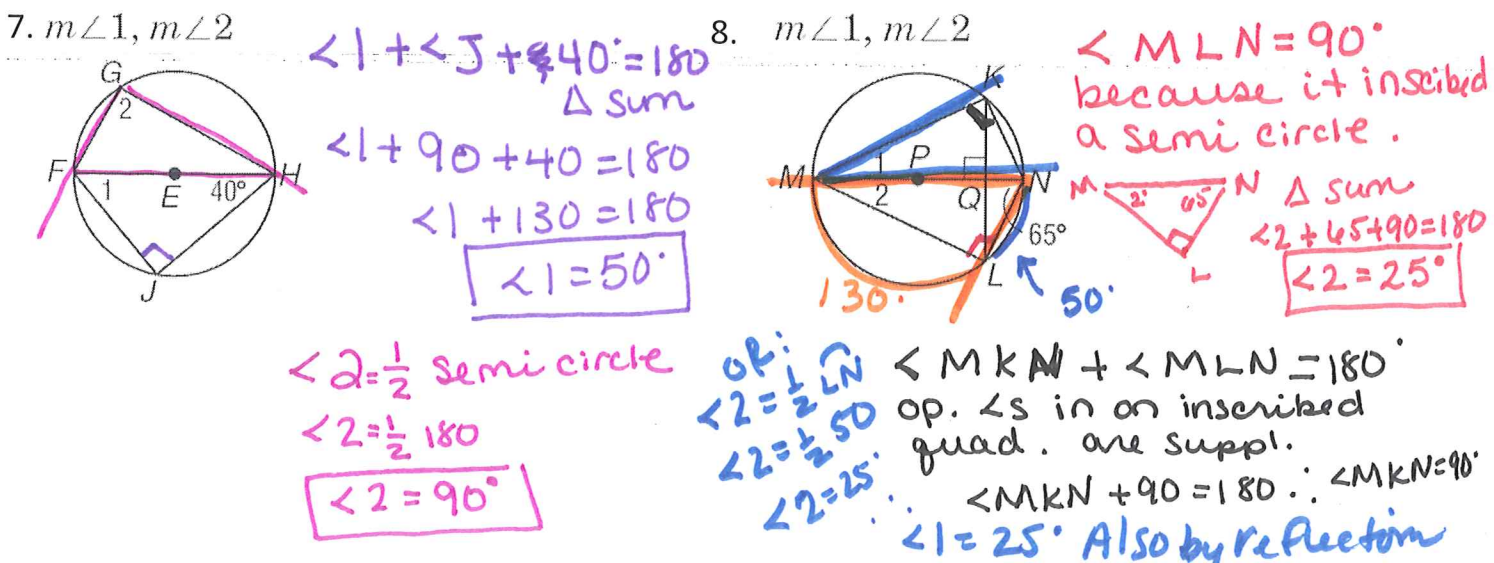 7. m∠1, m∠2
G
2
F
H
1
E
40°
J
<1 + <J + 40° = 180
Δ sum
<1 + 90 + 40 = 180
<1 + 130 = 180
<1 = 50°
<2 = 1/2 semi circle
<2 = 1/2 180
<2 = 90°
8. m∠1, m∠2
K
1
P
M
N
2
Q
65°
L
130°
50°
< MLN = 90°
because it inscibed
a semi circle.
M N
2 65
L
Δ sum
<2 + 65 + 90 = 180
<2 = 25°
OR:
<2 = 1/2 LN
<2 = 1/2 50
<2 = 25°
< MKN + < MLN = 180°
op. <s in an inscribed
quad. are suppl.
<MKN + 90 = 180 ∴ <MKN = 90°
∴ <1 = 25° Also by reflection